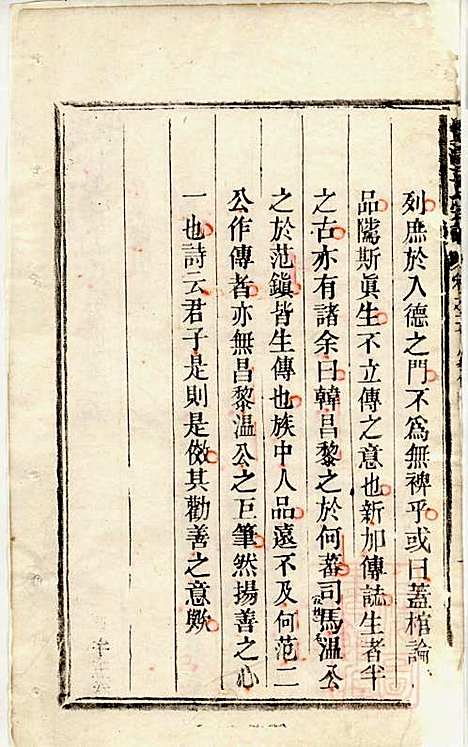 列庶於入德之門不為無裨乎或曰蓋棺論
品隲斯眞生不立傳之意也新加傳誌生者半
之古亦有諸余曰韓昌黎之於何蕃司馬溫公
之於范鎭皆生傳也族中人品遠不及何范二
公作傳者亦無昌黎温公之巨筆然揚善之心
一也詩云君子是則是傚其勸善之意歟